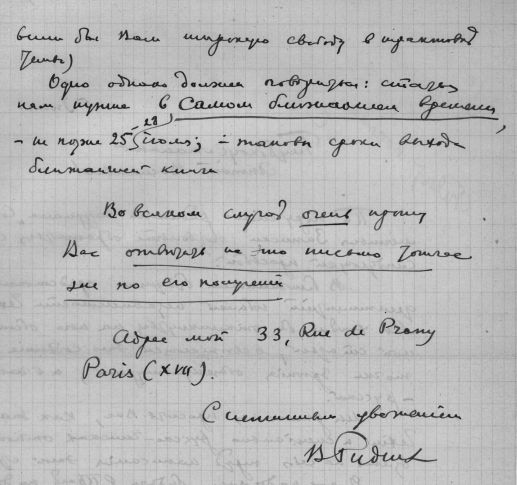 били бы Вам широкую свободу в трактовке
темы)
Одно однако должен оговорить: статья
нам нужна в самом ближайшем времени,
- не позже 25-28 июля; - таковы сроки выхода
ближайшей книги
Во всяком случае очень прошу
Вас ответить на это письмо тотчас
же по его получении
Адрес мой 33, Rue de Prony
Paris (XVII).
С истинным уважением
В Руднев